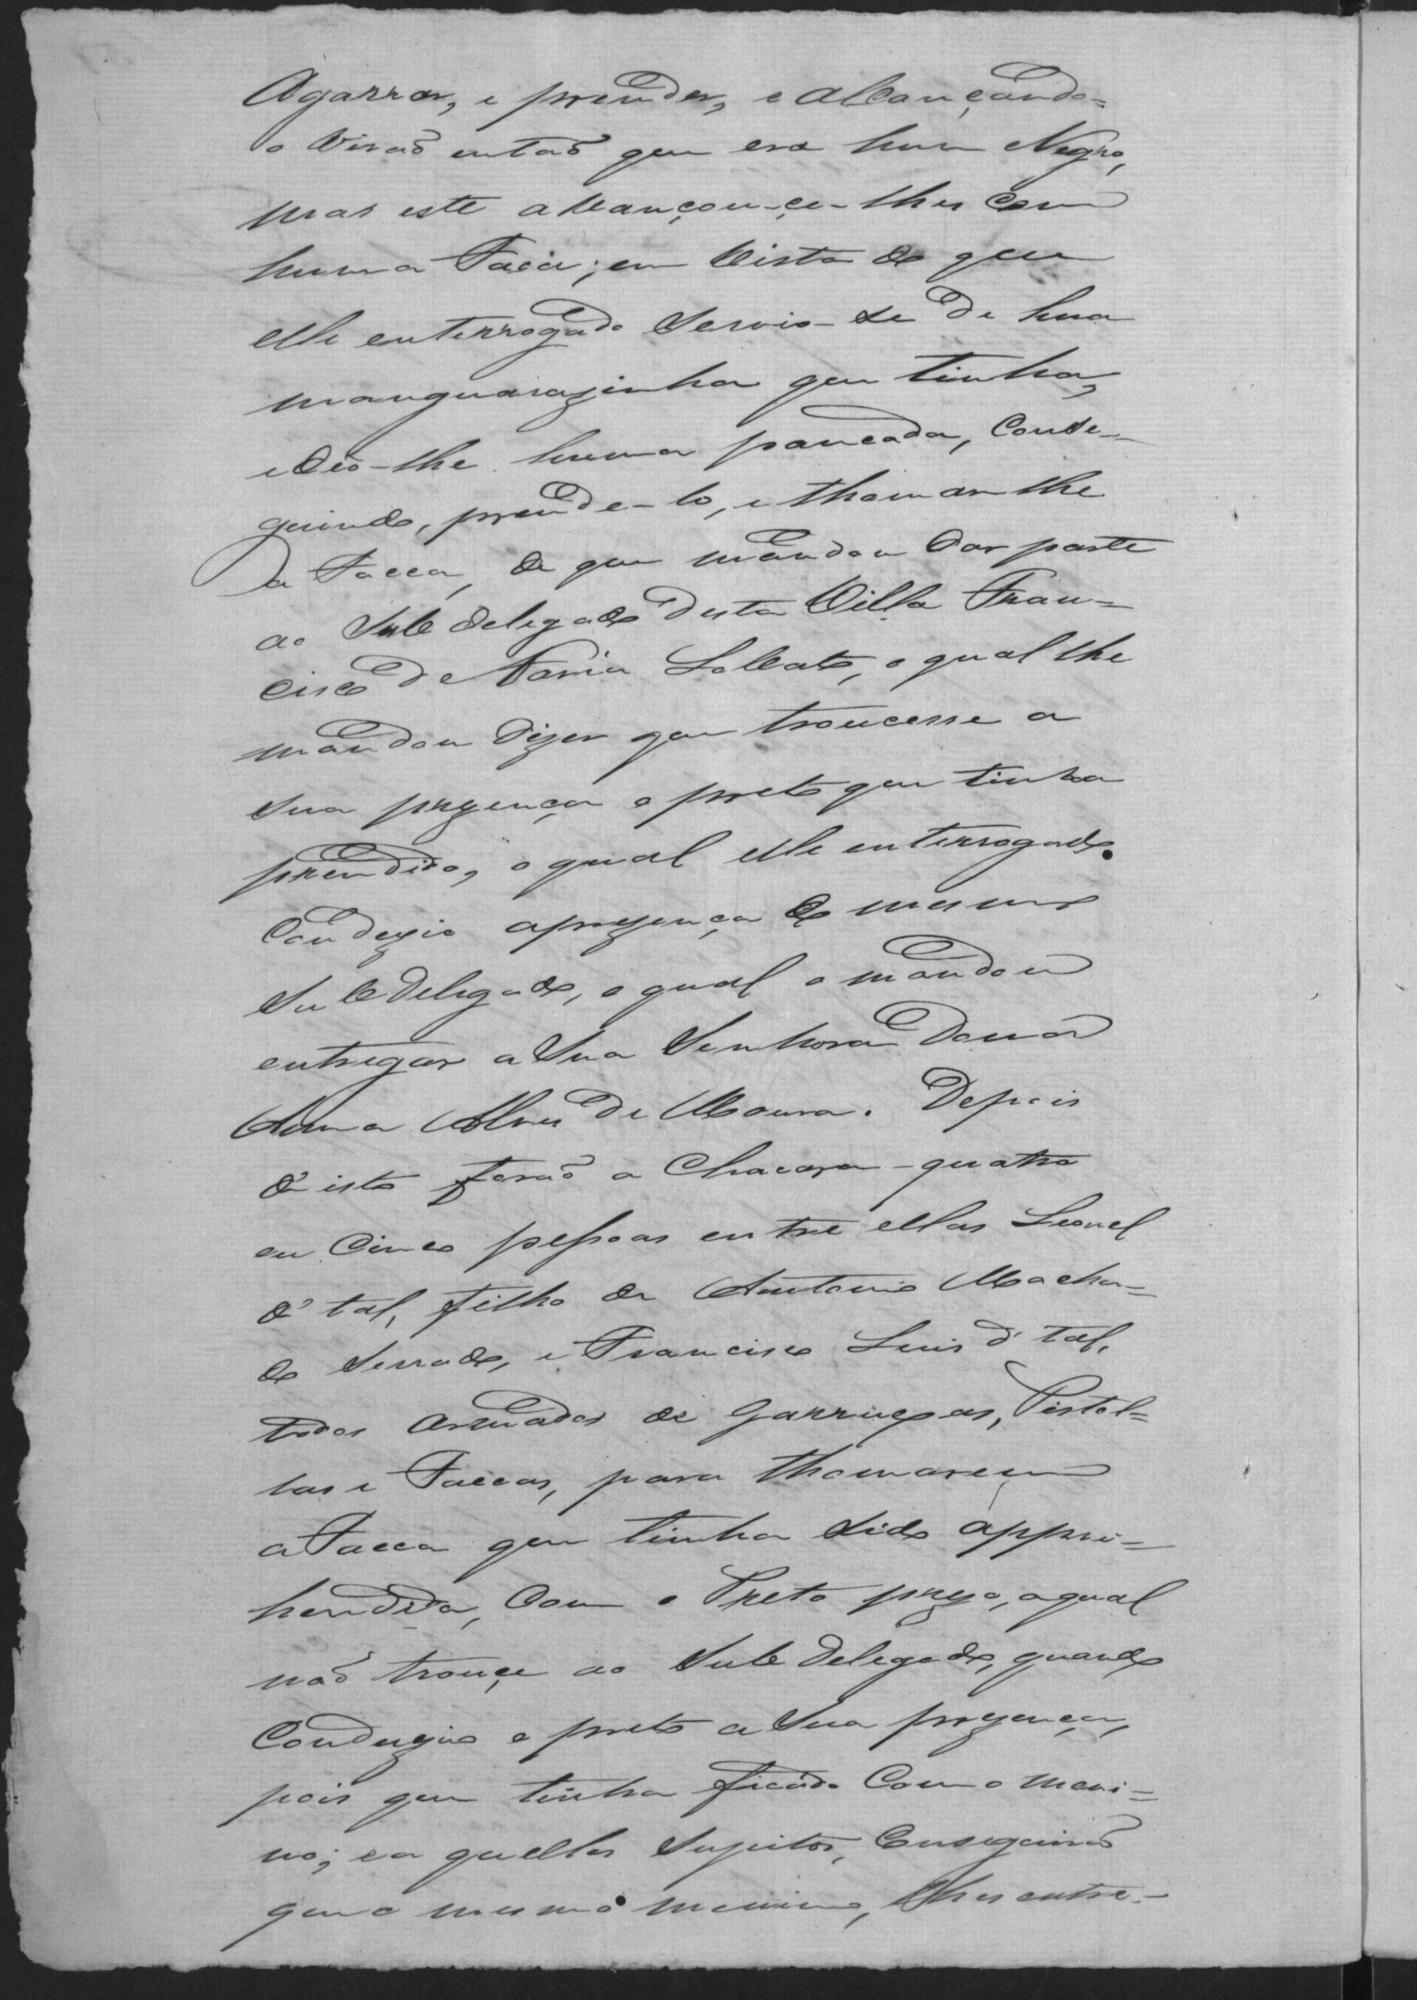 Agarrar, e prender, e alcançando=
o virão então que era hum Negro,
mas este avançou-ce-lhes com
huma Faca; em vista do que
elle enterrogado servio-se de hua
manguarazinha que tinha,
e deo-lhe huma pancada, conse-
guindo, prende-lo, e thomar lhe
a Facca, de que mandou dar parte
ao Subdelegado desta Villa Fran=
cisco de Faria Lobato, o qual lhe
mandou dizer que troucesse a
sua prezença o preto que tinha
prendido, o qual elle enterrogado
conduzio aprezença do mesmo
Subdelegado, o qual o mandou
entregar a sua Senhora Dona
Anna Alves de Moura. Depois
d'isto forão a Chacara quatro
ou cinco pessoas entre ellas Leonel
d'tal, filho de Antonio Macha=
do Serrado, e Francisco Luis d'tal,
todos armados de Garruxas, Pistol=
las e Faccas, para thomarem
a Facca que tinha sido appre=
hendida, com o Preto prezo, a qual
não trouçe ao Subdelegado, quando
conduzio o preto a sua prezença,
pois que tinha ficado com o meni=
no; e a quelles sugeitos, conseguirão
que o mesmo menino, lhes entre-